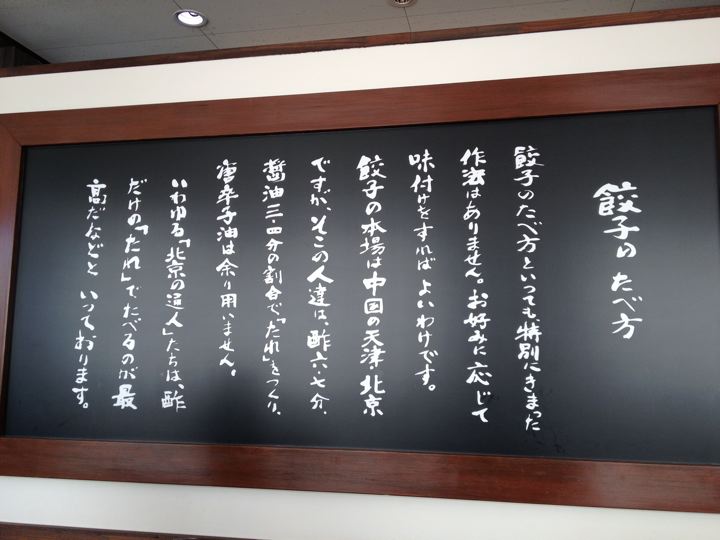 餃子の たべ方
餃子のたべ方といっても特別にきまった
作法はありません。お好みに応じて
味付けをすれば よいわけです。
餃子の本場は中国の天津・北京
ですが、そこの人達は、酢六・七分、
醤油三・四分の割合で、「たれ」をつくり、
唐辛子油は余り用いません。
いわゆる「北京の通人」たちは、酢
だけの「たれ」でたべるのが 最
高だなどと いっております。